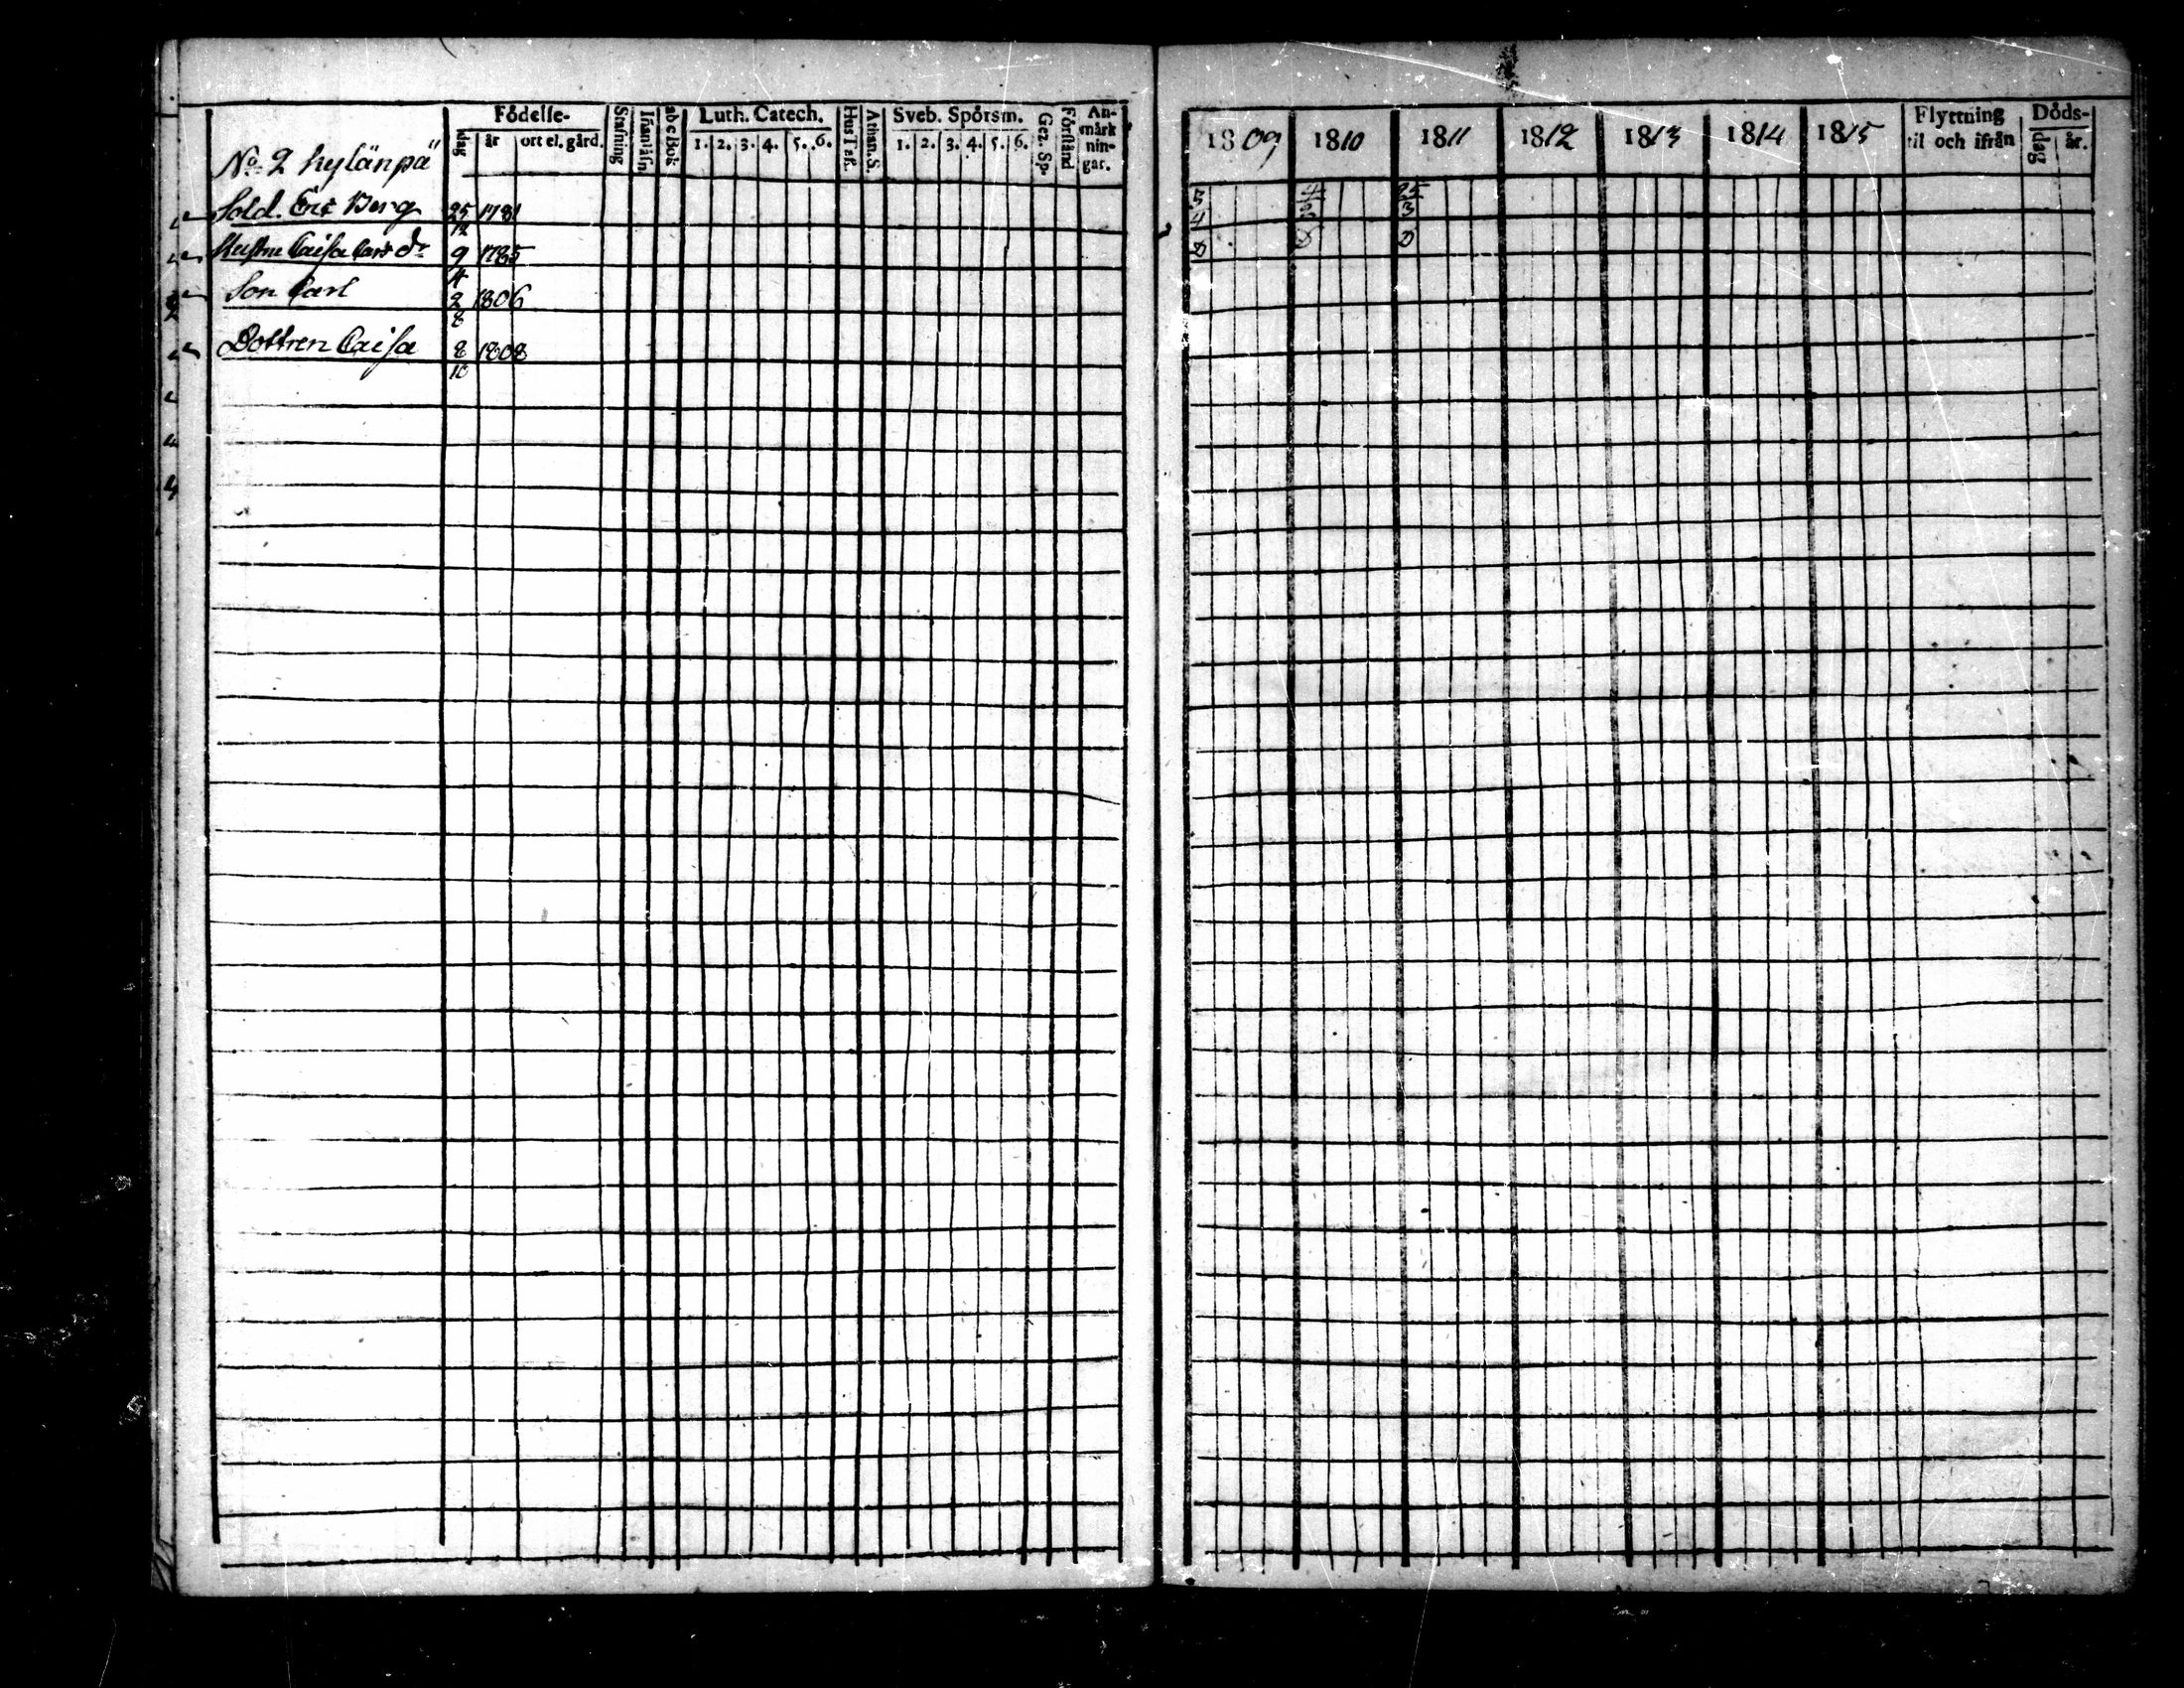 Födelse-
dag
år
ort el. gård.
Stafning
Iñanläsn
abc Bok
Luth. Catech.
1. 2. 3. 4. 5. 6.
Hus Taf.
Athan. S.
Sveb. Spörsm.
1. 2. 3. 4. 5. 6.
Gez. Sp.
Förstånd
An-
märk
nin-
gar.
No. 2 Kylänpä
Sold. Eric Berg 25 1781
12
Hustru Caisa Carls dr 9 1785
4
Son Carl 2 1806
8
Dottren Caisa 8 1808
10
1809 1810 1811 1812 1813 1814 1815
Flyttning
til och ifrån
Döds-
dag
år.
3 4 25
4 3 3
D D D